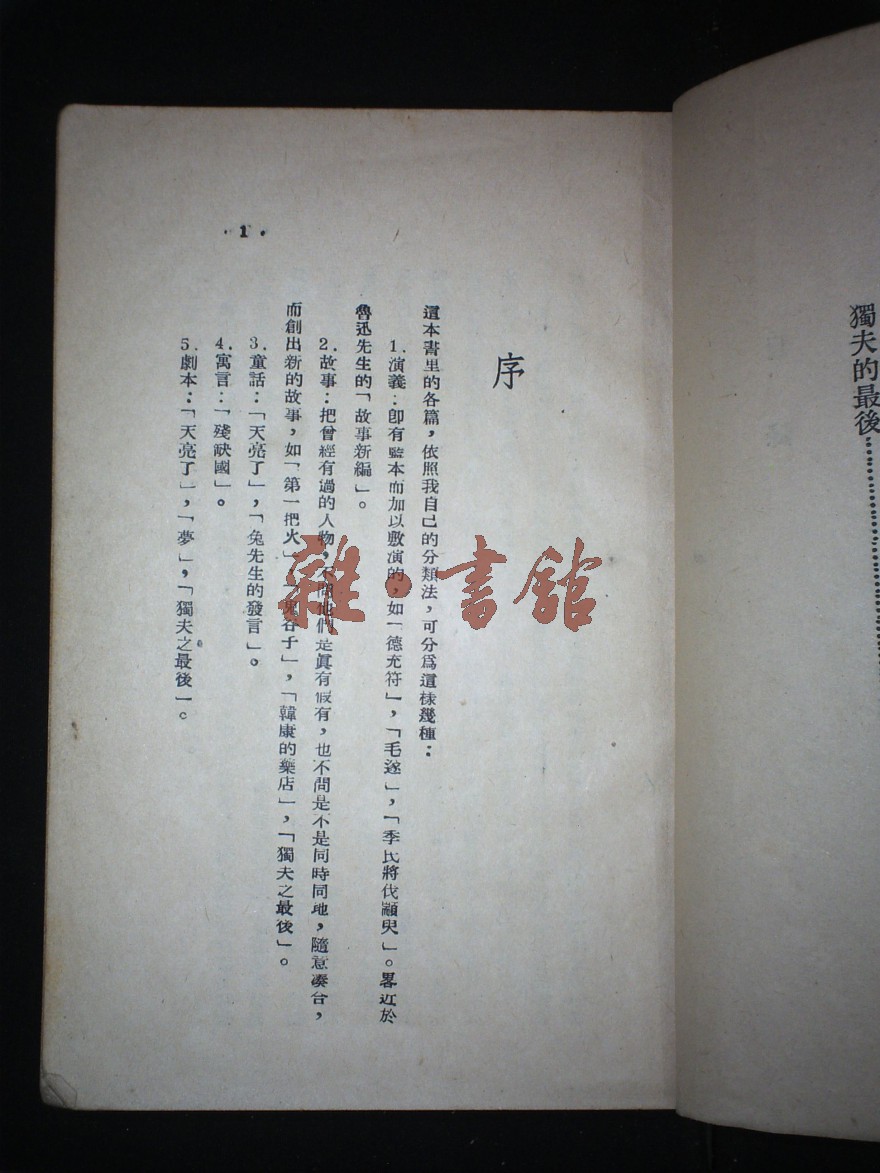 獨夫的最後
序
這本書里的各篇，依照我自己的分類法，可分爲這樣幾種：
1.演義：卽有監本而加以敷演的，如「德充符」，「毛遂」，「季氏將伐顓臾」。畧近於
魯迅先生的「故事新編」。
2.故事：把曾經有過的人物，不問他們是眞有假有，也不問是不是同時同地，隨意凑合，
而創出新的故事，如「第一把火」，「鬼谷子」，「韓康的藥店」，「獨夫之最後」。
3.童話：「天亮了」，「兔先生的發言」。
4.寓言：「殘缺國」。
5.劇本：「天亮了」，「夢」，「獨夫之最後」。
·1·
雜·書館